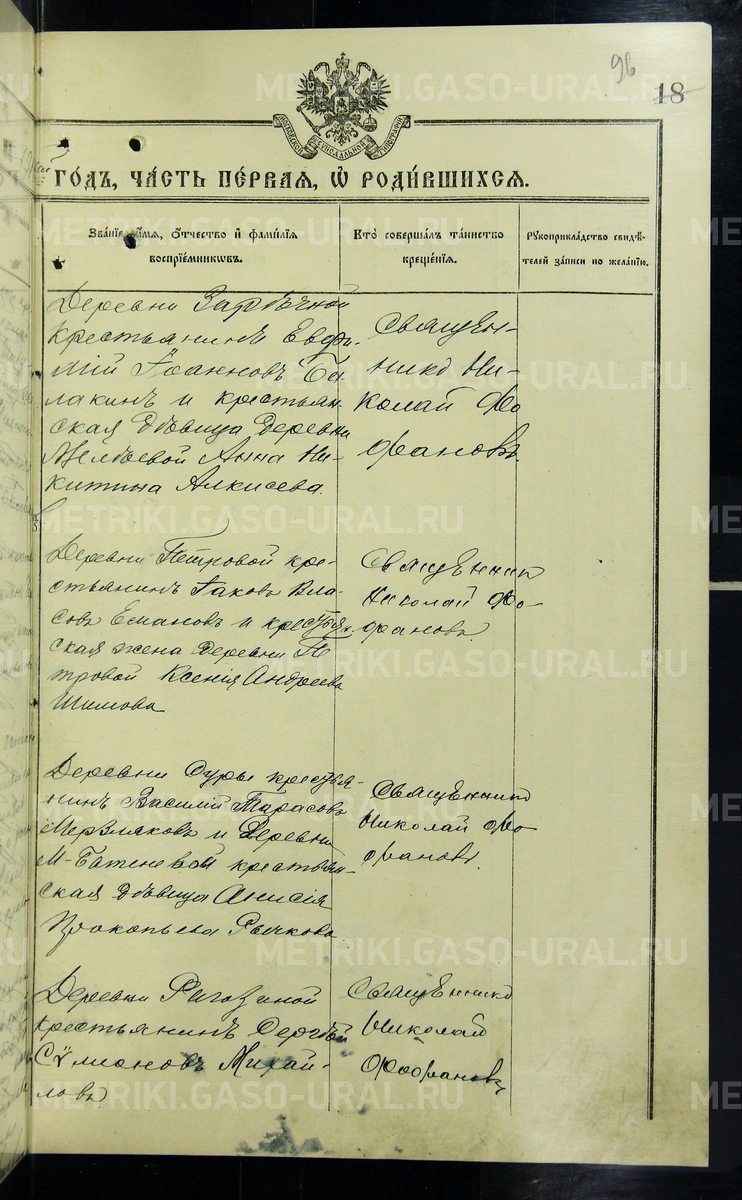 96
18
МОСКОВСКОЙ СѴНОДАЛЬНОЙ ТИПОГРАФІИ
ГО́ДЪ, ЧА́СТЬ ПЕ́РВАЯ, Ѡ҆ РОДИ́ВШИХСЯ.
Зва́нїе, и҆́мя, ѻ҆́тчество и҆ фами́лїя
воспрїе́мникѡвъ.
Кто̀ соверша́лъ та́инство
креще́нїя.
Рꙋкоприкла́дство свидѣ́-
телей за́писи по жела́нїю.
Деревни Зарѣчной
крестьянинъ Евфи-
мій Іоанновъ Ба-
лакинъ и крестьян-
ская дѣвица деревни
Анна Ни-
китина Алкисева.
Священ-
никъ Ни-
колай Фо
фановъ.
Деревни Петровой кре-
стьянинъ Іаковъ Вла-
совъ Есмановъ и крестьян.
ская жена деревни Пе
тровой Ксенія Андреева
Шимова
Священник
Николай Фо-
фановъ.
Деревни Суры крестья-
нинъ Василій Тарасовъ
Мерзляковъ и деревни
М-Батеневой крестьян-
ская дѣвица Анисія
Прокопьева Рычкова
Священникъ
Николай Фо-
фановъ.
Деревни Рагозиной
крестьянинъ Сергѣй
Сѵмеоновъ Михай-
ловъ
Священникъ
Николай
Фофановъ
METRIKI.GASO-URAL.RU